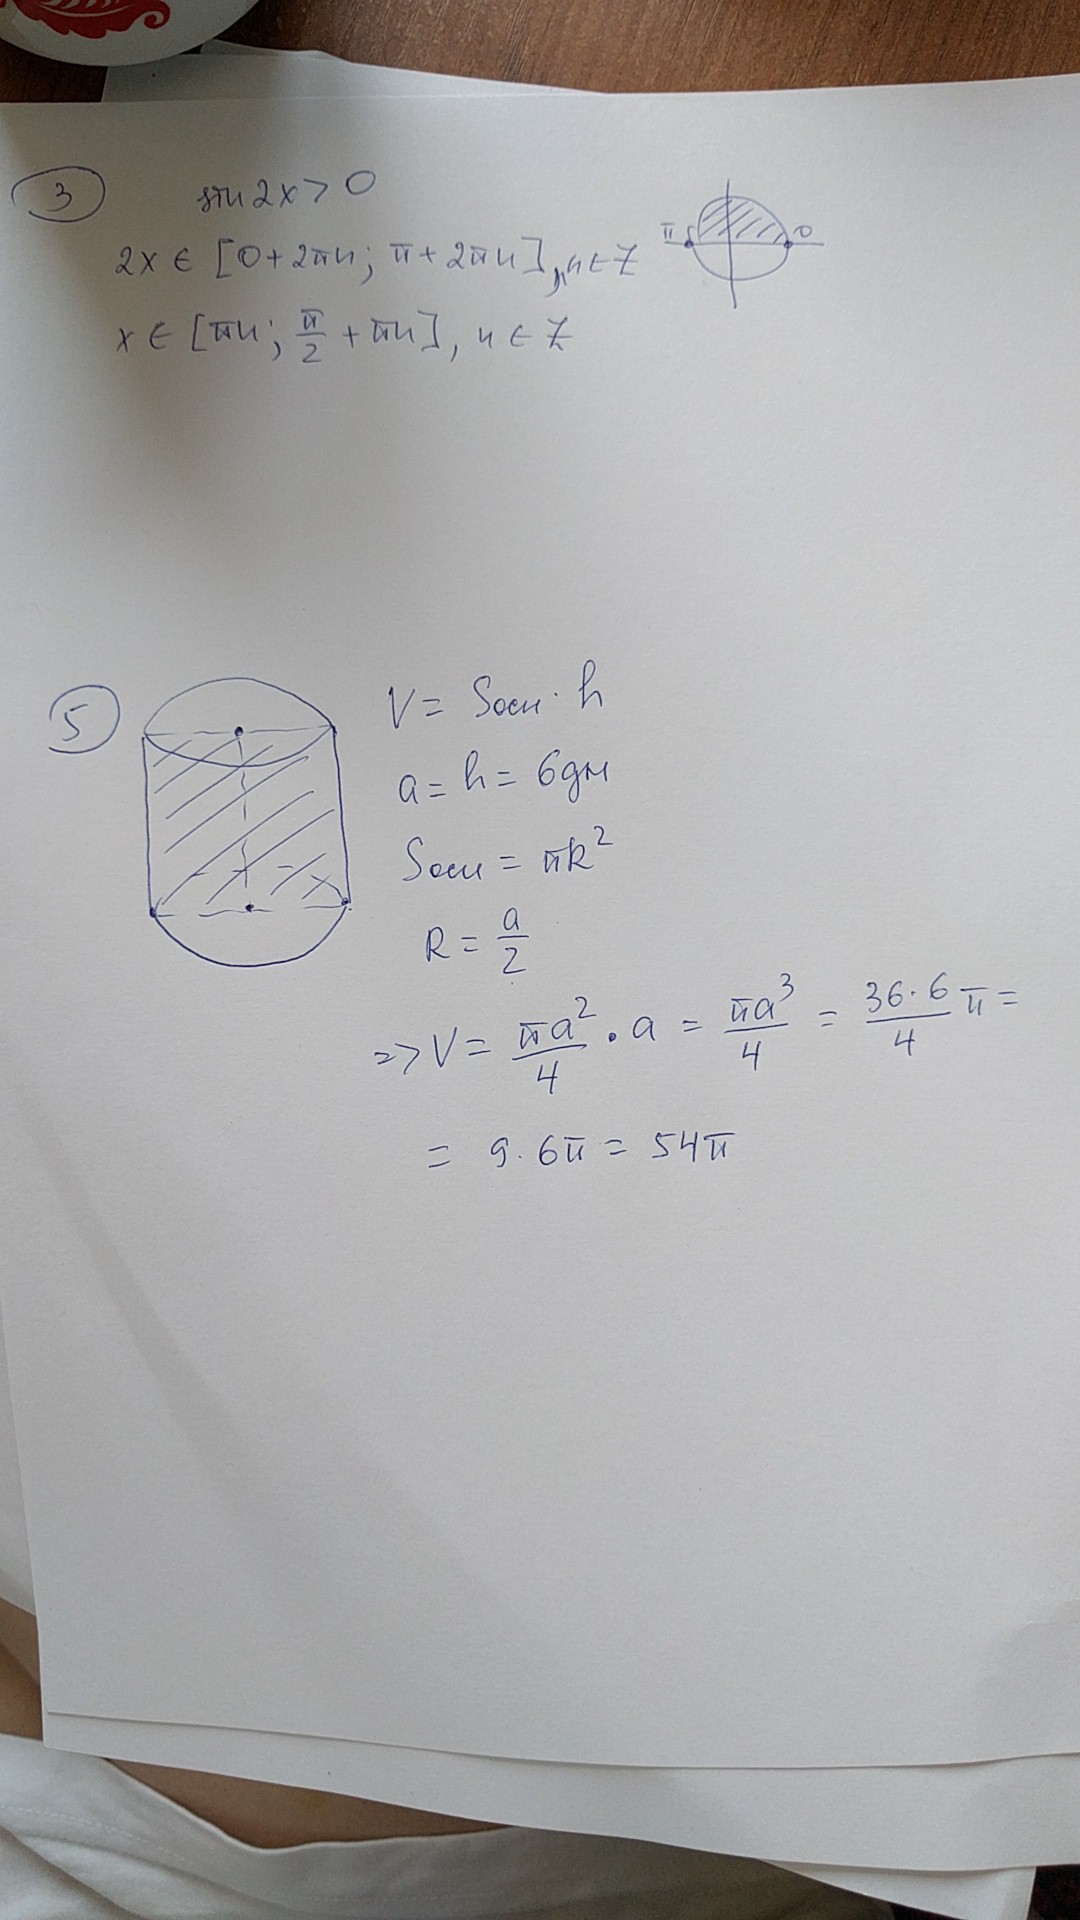 3 sin 2x > 0
π 0
2x ∈ [0+2πn; π+2πn], n ∈ Z
x ∈ [πn; π/2 + πn], n ∈ Z
5 V = Sосн · h
a = h = 6дм
Sосн = πR²
R = a/2
=> V = πa²/4 · a = πa³/4 = 36·6/4 π =
= 9·6π = 54π